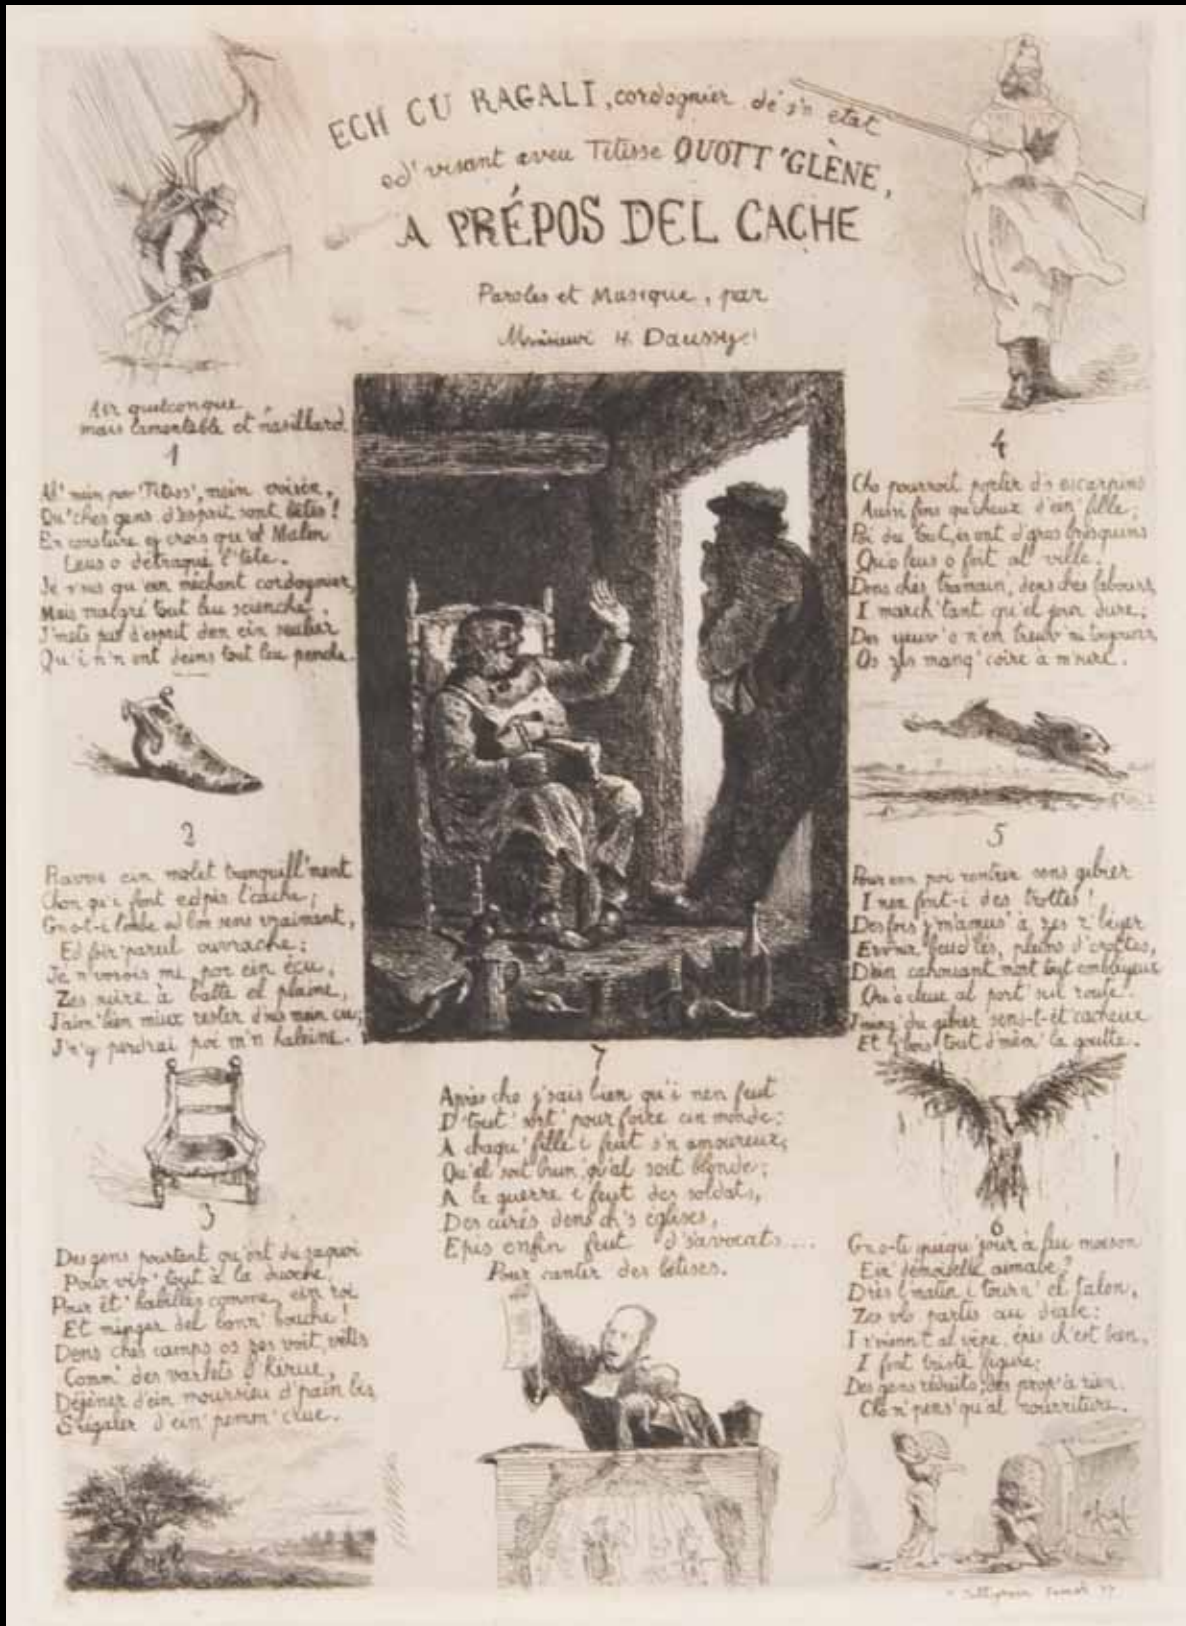 ECH CU RAGALI, cordognier dé s'n état
ed'visant aveu Titisse QUOTT'GLÈNE,
A PRÉPOS DEL CACHE
Paroles et Musique, par
H. Daussy
Air quelconque
mais lamentable et nasillard.
1
Ah' mein por Titiss', mein voisin,
Qu'ches gens d'esprit sont bêtes!
En conscure ej crois qu'el Malen
Leus o détraqué l'tête.
Je n'sus qu'ein méchant cordognier,
Mais malgré tout leu scienche,
J'mets pus d'esprit den ein soulier
Qu'i n'n ont deins tout leu
2
Ravise ein molet tranquill'ment
Chon qu'i font edpis l'cache;
Gn-o-t-i l'ombe ed bon sens vraiment,
Ed foir' pareul ouvrache;
Je n'vorois mi, por ein écu,
Zes suire à batte el plaine,
J'aim' bien miux rester d'sus mein cu;
J'n'y perdrai poi m'n haleine.
3
Des gens pourtant qu'ont du
Pour viv' tout à la
Pour êt' habillés comme ein roi
Et minger del bonn' bouche!
Dens ches camps os zes voit, vêtis
Comm' des varlets d'kérue,
Déjeuner d'ein moursieu d'pain bis,
S'régaler d'ein' pemm' crue.
4
Cho pourroit porter d's escarpins
Aussi fins qu'cheux d'ein' fille;
Poi du tout, is ont d'gros brosquins
Qu'o leus o foit al ville.
Dens ches tramain, dens ches labours,
I march'tant qu'el jour dure;
Des
Os zes mang' coire à m'sure.
5
Pour enn poi rentrer sans gibier
I nen font-i des trottes!
Des fois j'm'amus' à zes
pleins d'crottes,
D'ein mort tout
Qu'o al port' sul route.
J'ming' du gibier sens-t-êt cacheux
Et j'bois tout d'mêm' la goutte.
6
Gn-o-ti quéqu'jour à leu moison
Ein' démoiselle aimabe?
Drès l'matin i tourn'el talon,
Zes vlo partis au diabe;
I r'vienn't al vêpe, éris ch'est bon,
I font triste figure;
Des gens réduits, des prop' à rien.
Cho n'pens' qu'al nourriture.
7
Après cho j'sais bien qu'i nen feut
D'tout' sort' pour foire ein monde;
A chaqu' fille i feut s'n amoureux,
Qu'al soit brun', qu'al soit blonde;
A la guerre i feut des soldats,
Des curés dens ch's églises,
Epis enfin feut d's avocats....
Pour canter des bêtises.